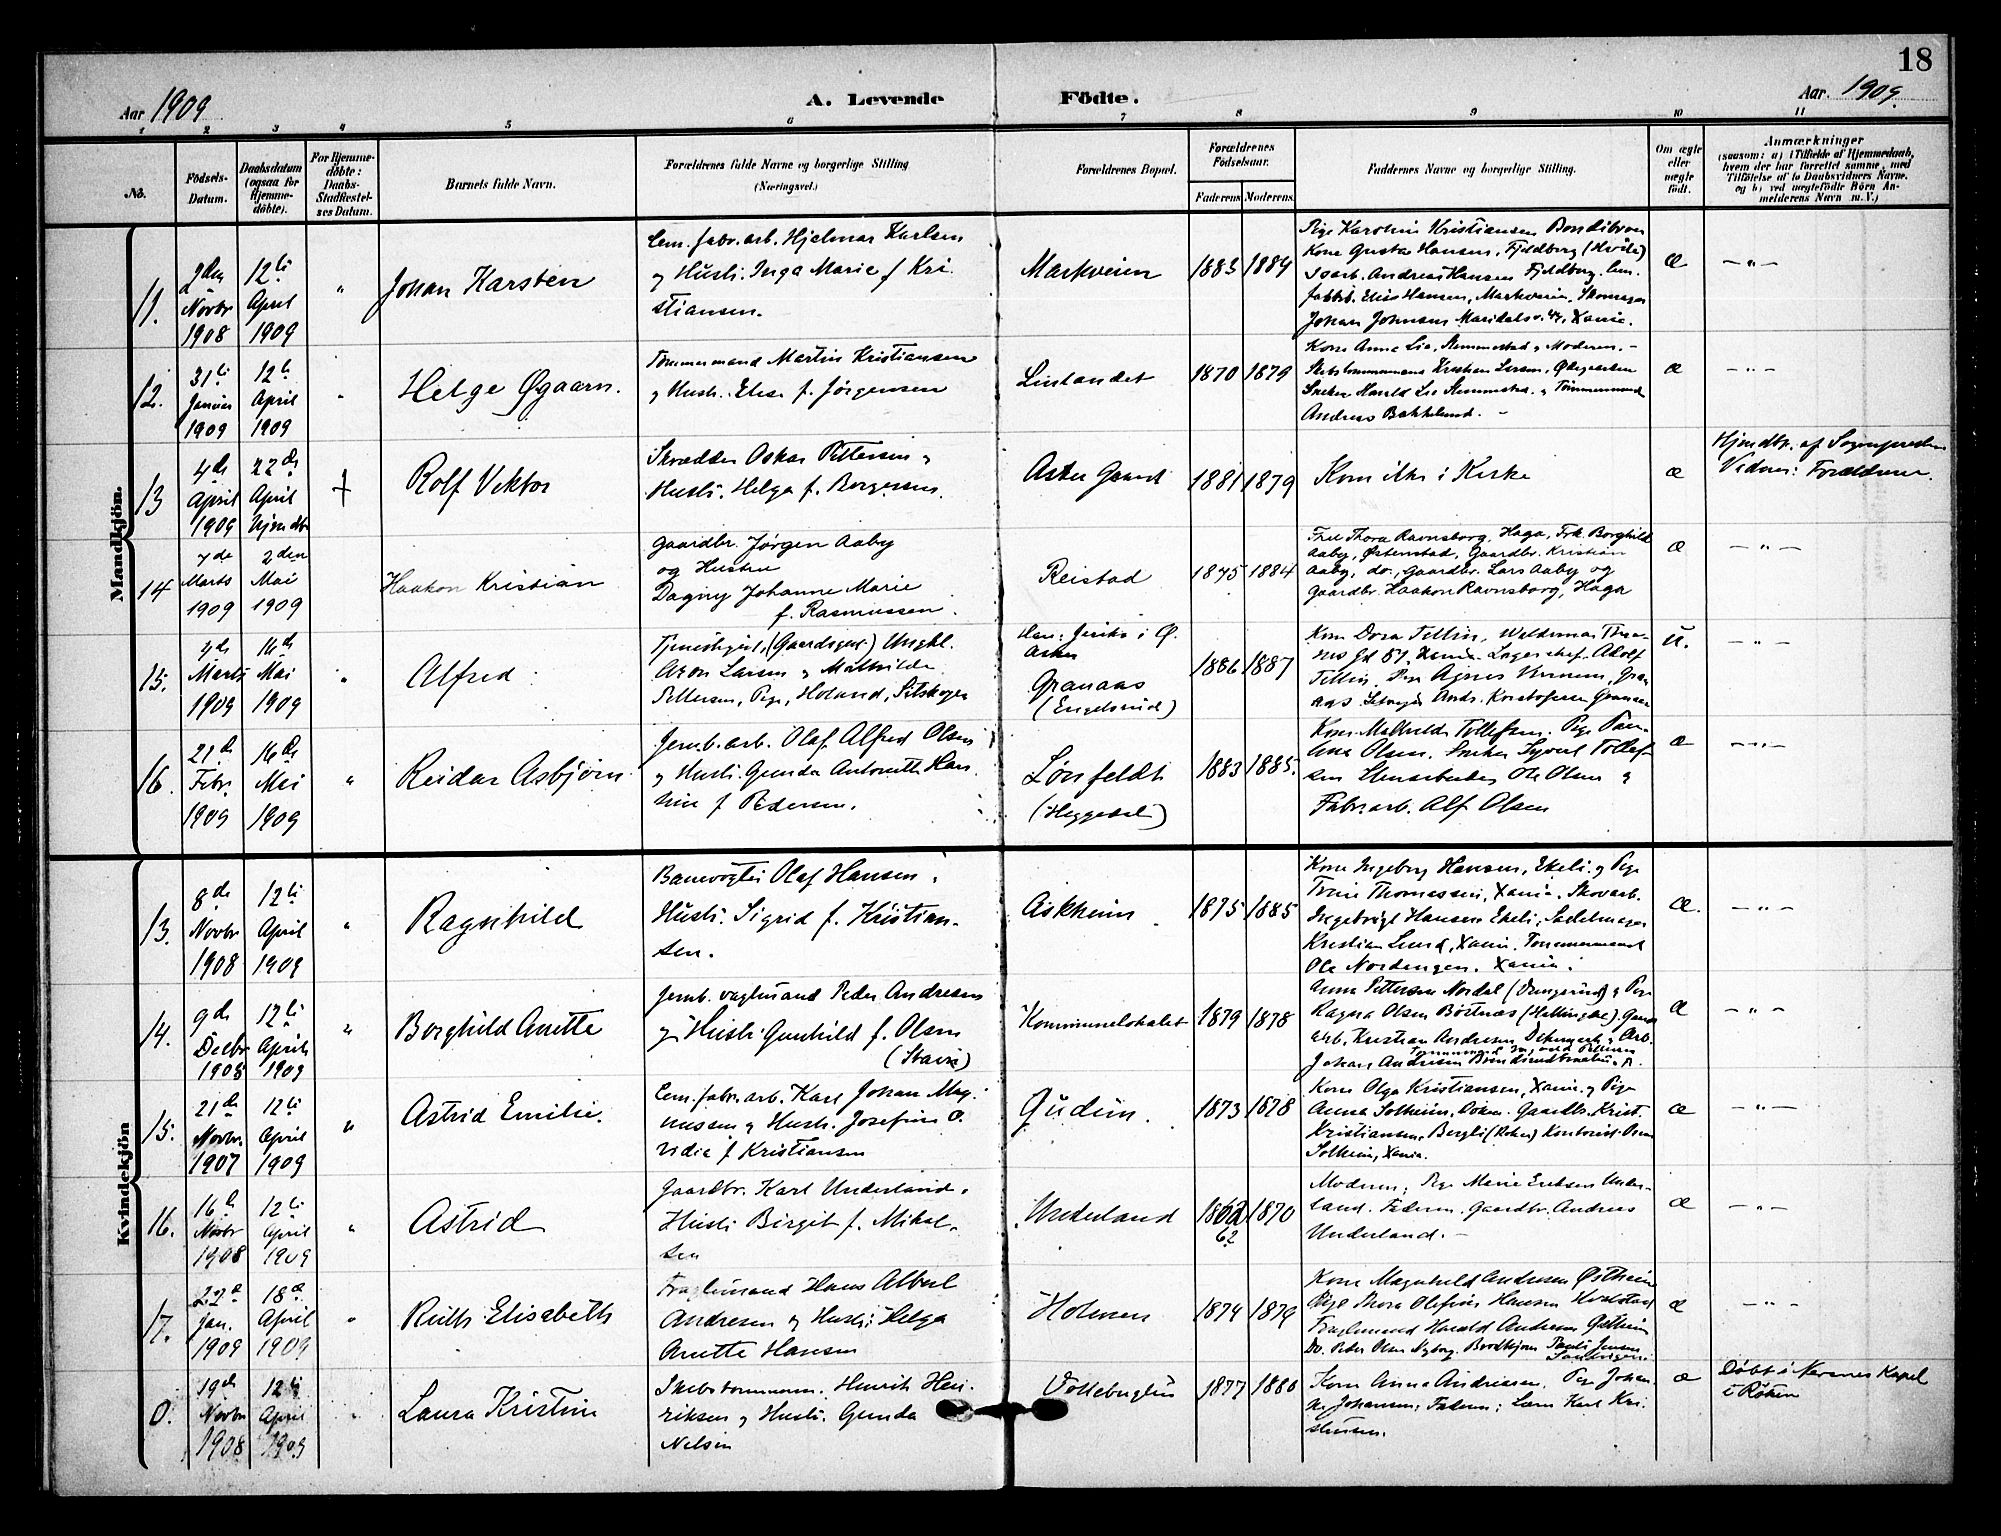 18
Aar 1909
A. Levende Födte.
Aar. 1909
1 2 3 4 5 6 7 8 9 10 11
No.
Födsels-
Datum.
Daabsdatum
(ogsaa for
Hjemme-
döbte).
For Hjemme-
döbte:
Daabs-
Stadfæstel-
ses Datum.
Barnets fulde Navn.
Forældrenes fulde Navne og borgerlige Stilling
(Næringsvei.)
Forældrenes Bopæl.
Forældrenes
Födselsaar.
Faderens Moderens
Faddernes Navne og borgerlige Stilling.
Om ægte
eller
uægte
födt.
Anmærkninger
(saasom: a) i Tilfælde af Hjemmedaab,
hvem der har forrettet samme, med
Tilföielse af to Daabsvidners Navne.
og b) ved uægtefödte Börn An-
melderens Navn m.V.)
Mandkjön.
11.
2den
Novbr
1908
12te
April
1909
"
Johan Karsten
Cem. fabr. arb. Hjelmar Karlsen
og Hustr. Inga Marie f Kri-
stiansen.
Markveien
1883 1884
Pige Karoline Kristiansen Bondibroen
Kone Gusta Hansen, Fjeldberg (Hvals)
Isarb. Andreas Hansen Fjeldberg. Cem.
fabrikb. Elias Hansen, Markveien, Skomager
Johan Johnsen Maridalsv. 44, Xania.
æ
— " —
12.
31te
Januar
1909
12te
April
1909
"
Helge Øgaarn.
Tømmermand Martin Kristiansen
og Hustr. Elise f. Jørgensen
Linlandet
1870 1879
Kone Anna Lie, Slemmestad og Moderen. —
Skibstømmermand Kristian Larsen,
Snekker Harald Lie Slemmestad og Tømmermand
Andreas Bakkelund. —
æ
— " —
13
4de
April
1909
22de
April
Hjemdbt
†
Rolf Viktor
Skrædder Oskar Pettersen og
Hustr. Helga f. Borgersen.
Asker Gaard
1881 1879
Kom ikke i Kirke
æ
Hjemdbt. af Sognepresten
Vidner: Forældrene.
14
7de
Marts
1909
2den
Mai
1909
Haakon Kristian
Gaardbr. Jørgen Aaby
og Hustru
Dagny Johanne Marie
f. Rasmussen.
Reistad
1875 1884
Frue Thora Ravnsborg, Haga, Frk. Borghild
Aaby, Østenstad, Gaardbr. Kristian
Aaby, do., Gaardbr. Lars Aaby og
Gaardbr. Haakon Ravnsborg, Haga
æ
— " —
15.
4de
Marts
1909
16de
Mai
1909
"
Alfred
Tjenestegut, (Gaardsgut) Ungkl.
Aron Larsen og Mathilde
Pettersen, Pige, Høland, Setskogen
Han: Jeriko i Ø.
Asker
Granaas
(Engelsrud)
1886 1887
Kone Dora Tellin, Waldemar Thra-
nes Gd 51. Xania. Lagerchef. Adolf
Tellin, Pige Agnes Gra-
naas, Andr. Kristofersen Granaas
u.
— " —
16.
21de
Febr.
1909
16de
Mai
1909
"
Reidar Asbjørn
Jernb. arb. Olaf Alfred Olsen
og Hustr. Gunda Antonette Han-
sine f Pedersen.
Lønfeldt
(Heggedal)
1883 1885.
Kone Mathilde Tollefsen. Pige Pau-
line Olsen. Snekker Syvert Tollef-
sen Stenarbeider Ole Olsen og
Fabr. arb. Alf Olsen
æ
— " —
Kvindekjön
13.
8de
Novbr
1908
12te
April
1909
"
Ragnhild
Banevogter Olaf Hansen og
Hustr. Sigrid f. Kristian-
sen.
Askheim
1875 1885
Kone Ingeborg Hansen, Ekeli og Pige
Trine Thomassen, Xania. Skovarb.
Ingebrigt Hansen Ekeli, Sadelmager
Kristian Lund, Xania. Tømmermand
Ole Nordengen. Xania.
æ.
— " —
14.
9de
Decbr
1908
12te
April
1909
"
Borghild Anette
Jernb. vagtmand Peder Andresen
og Hustr. Gunhild f. Olsen
(Stavn)
Kommunelokalet
1879 1878
Anna Pettersen Nordal (Vungerud) og Pige
Ragna Olsen Børtnæs (Hallingdal). Gaards
arb. Kristian Andresen Dikemark og Arb.
Johan Andresen
æ
— " —
15.
21de
Novbr.
1907
12te
April
1909
"
Astrid Emilie.
Cem. fabr. arb. Karl Johan Mag-
nussen og Hustr. Josefine O-
vidia f Kristiansen
Gudim.
1873 1878
Kone Olga Kristiansen, Xania og Pige
Anna Solheim, Asker. Gaardbr. Krist.
Kristiansen, Bergli (Røken) Kontorist Oscar
Solheim, Xania.
æ
— " —
16.
16de
Novbr
1908
12te
April
1909
"
Astrid
Gaardbr. Karl Underland og
Hustr. Birgit f. Mikel-
sen
Underland
1862 1870
62
Moderen; Pige Marie Eriksen Under-
land. Faderen. Gaardbr. Andreas
Underland. —
æ
— " —
17.
22de
Jan.
1909
18de
April
1909
"
Ruth Elisabeth
Fragtemand Hans Albert
Andresen og Hustr. Helga
Anette Hansen
Holmen
1874 1879
Kone Magnhild Andresen Østheim
Pige Thora Olefine Hansen Hvalstad
Fragtemand Harald Andresen Østheim
Do. Peder Olsen Nyborg. Jensen
æ
— " —
0.
19de
Novbr
1908
12te
April
1909
"
Laura Kristine
Skibstømmerm. Henrik Hen-
riksen og Hustr. Gunda
Nelsen
1877 1880
Kone Anna Andreasen, Pige Johan-
ne Johansen; Faderen; Karl Kri-
stensen.
æ
Døbt i Nærsnes Kapel
i Røken